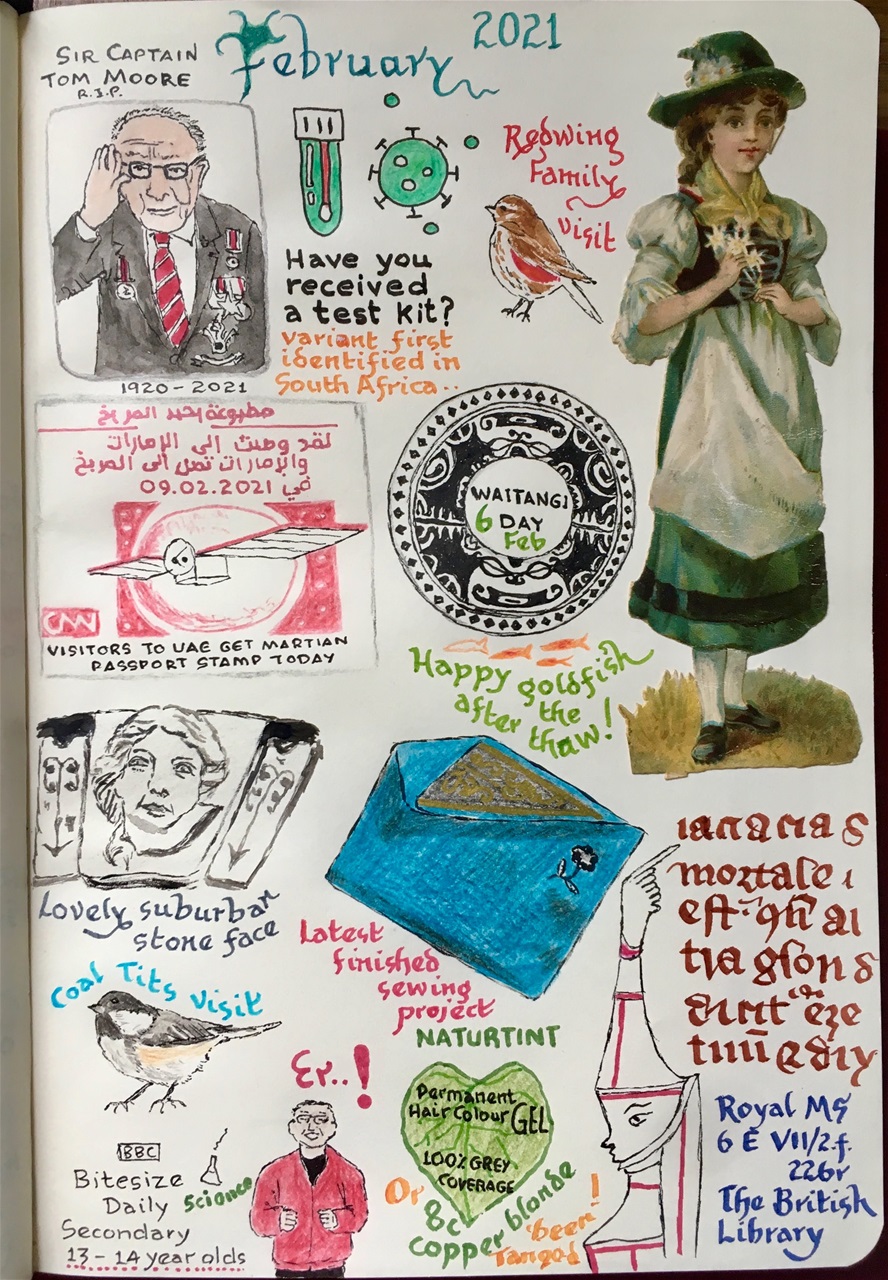 February 2021
SIR CAPTAIN
TOM MOORE
R.I.P.
1920-2021
Have you
received
a test kit?
variant first
identified in
South Africa..
Redwing
Family
visit
لقد وصلت إلى الإمارات
والإمارات تصل إلى المريخ
في 09.02.2021
CNN
VISITORS TO UAE GET MARTIAN
PASSPORT STAMP TODAY
WAITANGI
6 DAY
Feb
Happy goldfish
after the
thaw!
Lovely suburban
stone face
Latest
finished
sewing
project
Coal Tits visit
Er..!
BBC
Bitesize
Daily
Science
Secondary
13-14 year olds
NATURTINT
Permanent
Hair Colour GEL
100% GREY
COVERAGE
Or
8c
copper blonde
'been
Tangod
!
mortale
Royal MS
6 E VII/2 f.
226r
The British
Library